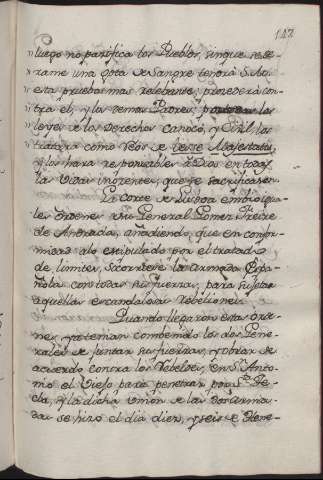 147
luego no pacifica los Pueblos, sin que se de-
rrame una gota de Sangre tendrá S. M.
esta prueba mas relebante, procederá con-
tra el, y los demas Padres;
leyes de los Derechos Canoco, y Civil, los
tratará como Reos de lesse Majestad,
y los hara responsables à Dios en todas
las Vidas inozentes, que se sacrificasen.
La Corte de Lisboa embió igua-
les ordenes à su General Gomez Freire
de Andrada, añadiendo, que en confor-
midad alo estipulado por el tratado
de limites, Socorriese la armada Espa-
ñola con todas sus fuerzas, para sujetar
aquellas escandalosas rebeliones.
Quando llegaron estas orde-
nes, ya tenian combenido los dos Gene-
rales de juntar sus fuerzas, y obrar de
acuerdo contra los Rebeldes, en Sn. Anto-
nio el Viejo para penetrar por Sta. Te-
cla, y la dicha union de las dos arma-
das se hizo el dia diez, y seis de Ene-